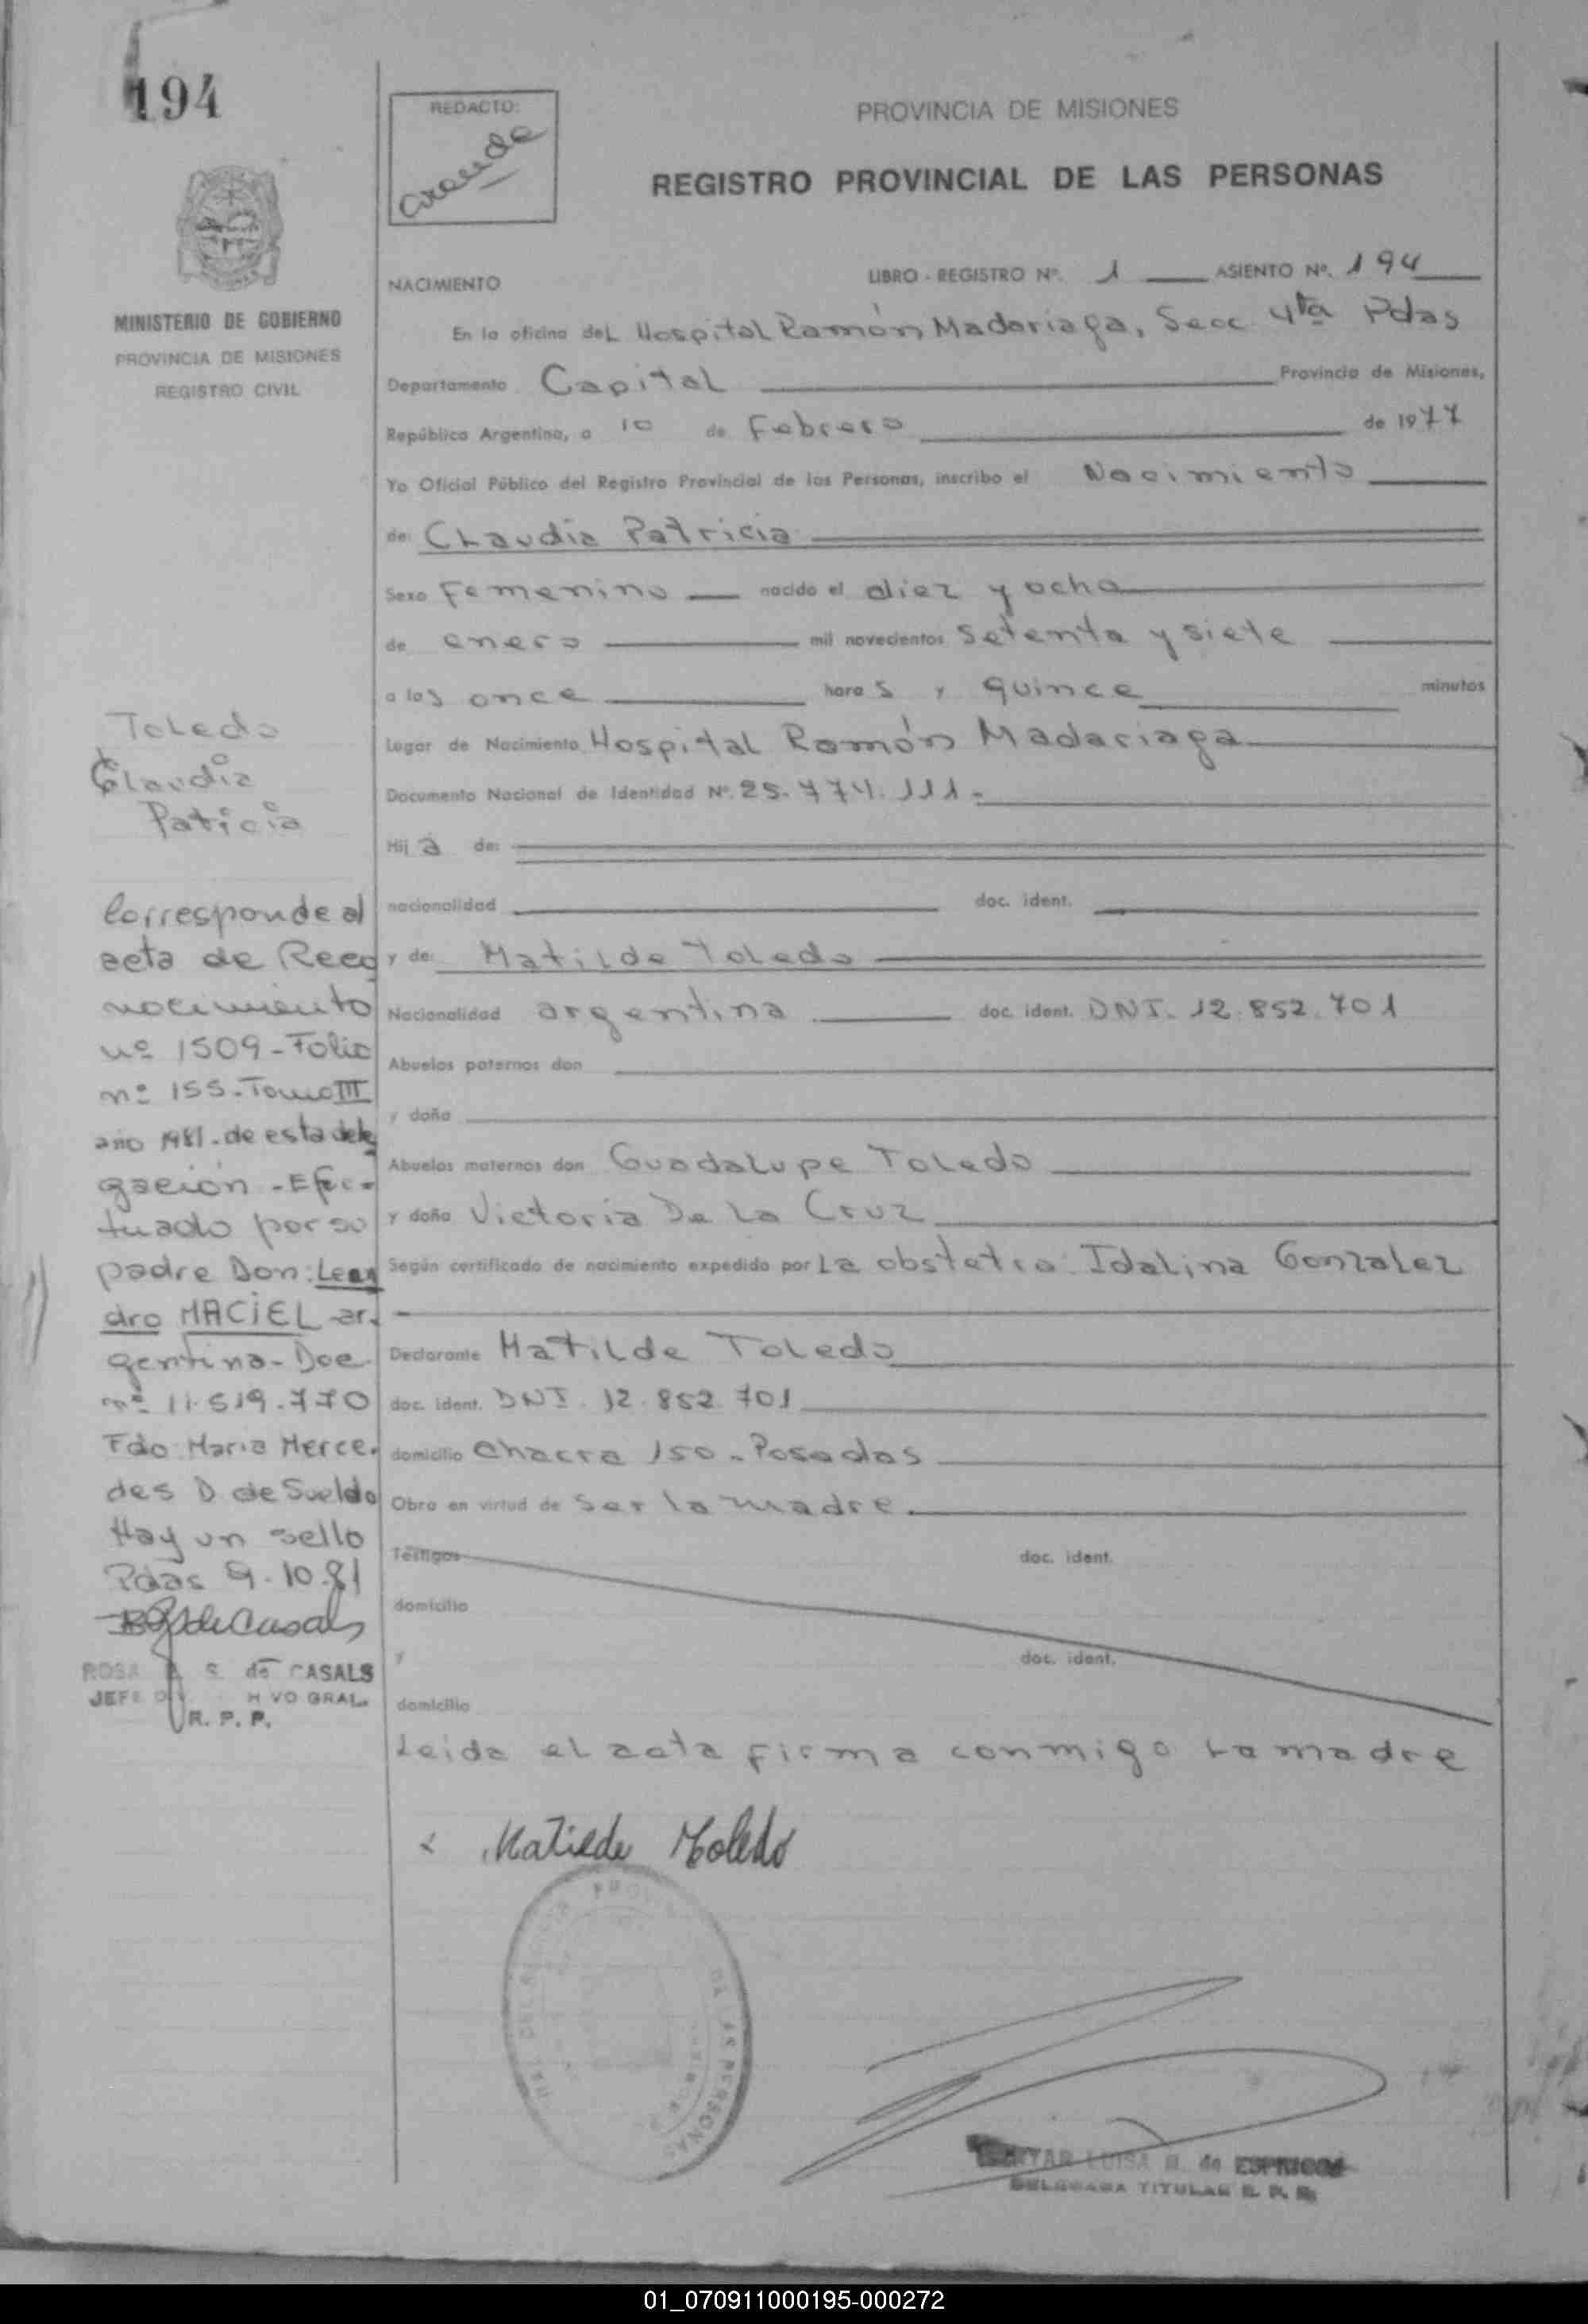 194
REDACTO:
PROVINCIA DE MISIONES
REGISTRO PROVINCIAL DE LAS PERSONAS
MINISTERIO DE GOBIERNO
PROVINCIA DE MISIONES
REGISTRO CIVIL
NACIMIENTO
LIBRO - REGISTRO Nº. 1 ASIENTO Nº. 194
En la oficina deL Hospital Ramón Madariaga, Secc 4ta Pdas
Departamento Capital Provincia de Misiones,
República Argentina, a 10 de Febrero de 1977
Yo Oficial Público del Registro Provincial de las Personas, inscribo el Nacimiento
de: Claudia Patricia
Sexo Femenino nacido el diez y ocho
de enero mil novecientos setenta y siete
a las once horas y quince minutos
Lugar de Nacimiento Hospital Ramón Madariaga
Documento Nacional de Identidad Nº. 25.774.111.-
Hija de:
nacionalidad doc. ident.
y de: Matilde Toledo
Nacionalidad argentina doc. ident. DNI. 12.852.701
Abuelos paternos don
y doña
Abuelos maternos don Guadalupe Toledo
y doña Victoria De La Cruz
Según certificado de nacimiento expedido por La obstetra Idalina Gonzalez
Declarante Matilde Toledo
doc. ident. DNI. 12.852.701
domicilio chacra 150 - Posadas
Obra en virtud de ser la madre
Testigos doc. ident.
domicilio
y doc. ident.
domicilio
Leida el acta firma conmigo la madre
Matilde Toledo
Toledo
Claudia
Paticia
Corresponde al
acta de Reco
nocimiento
nº 1509-Folio
nº 155-Tomo III
año 1981-de esta dele
gación -Efec-
tuado por su
padre Don: Lean
dro MACIEL -ar.
gentino-Doc.
nº 11.519.770
Fdo Maria Merce.
des D de Sueldo
Hay un sello
Pdas 9.10.81
ROSA S. de CASALS
JEFE VO GRAL.
R. P. P.
LUISA de
TITULAR R. P. P.
01_070911000195-000272